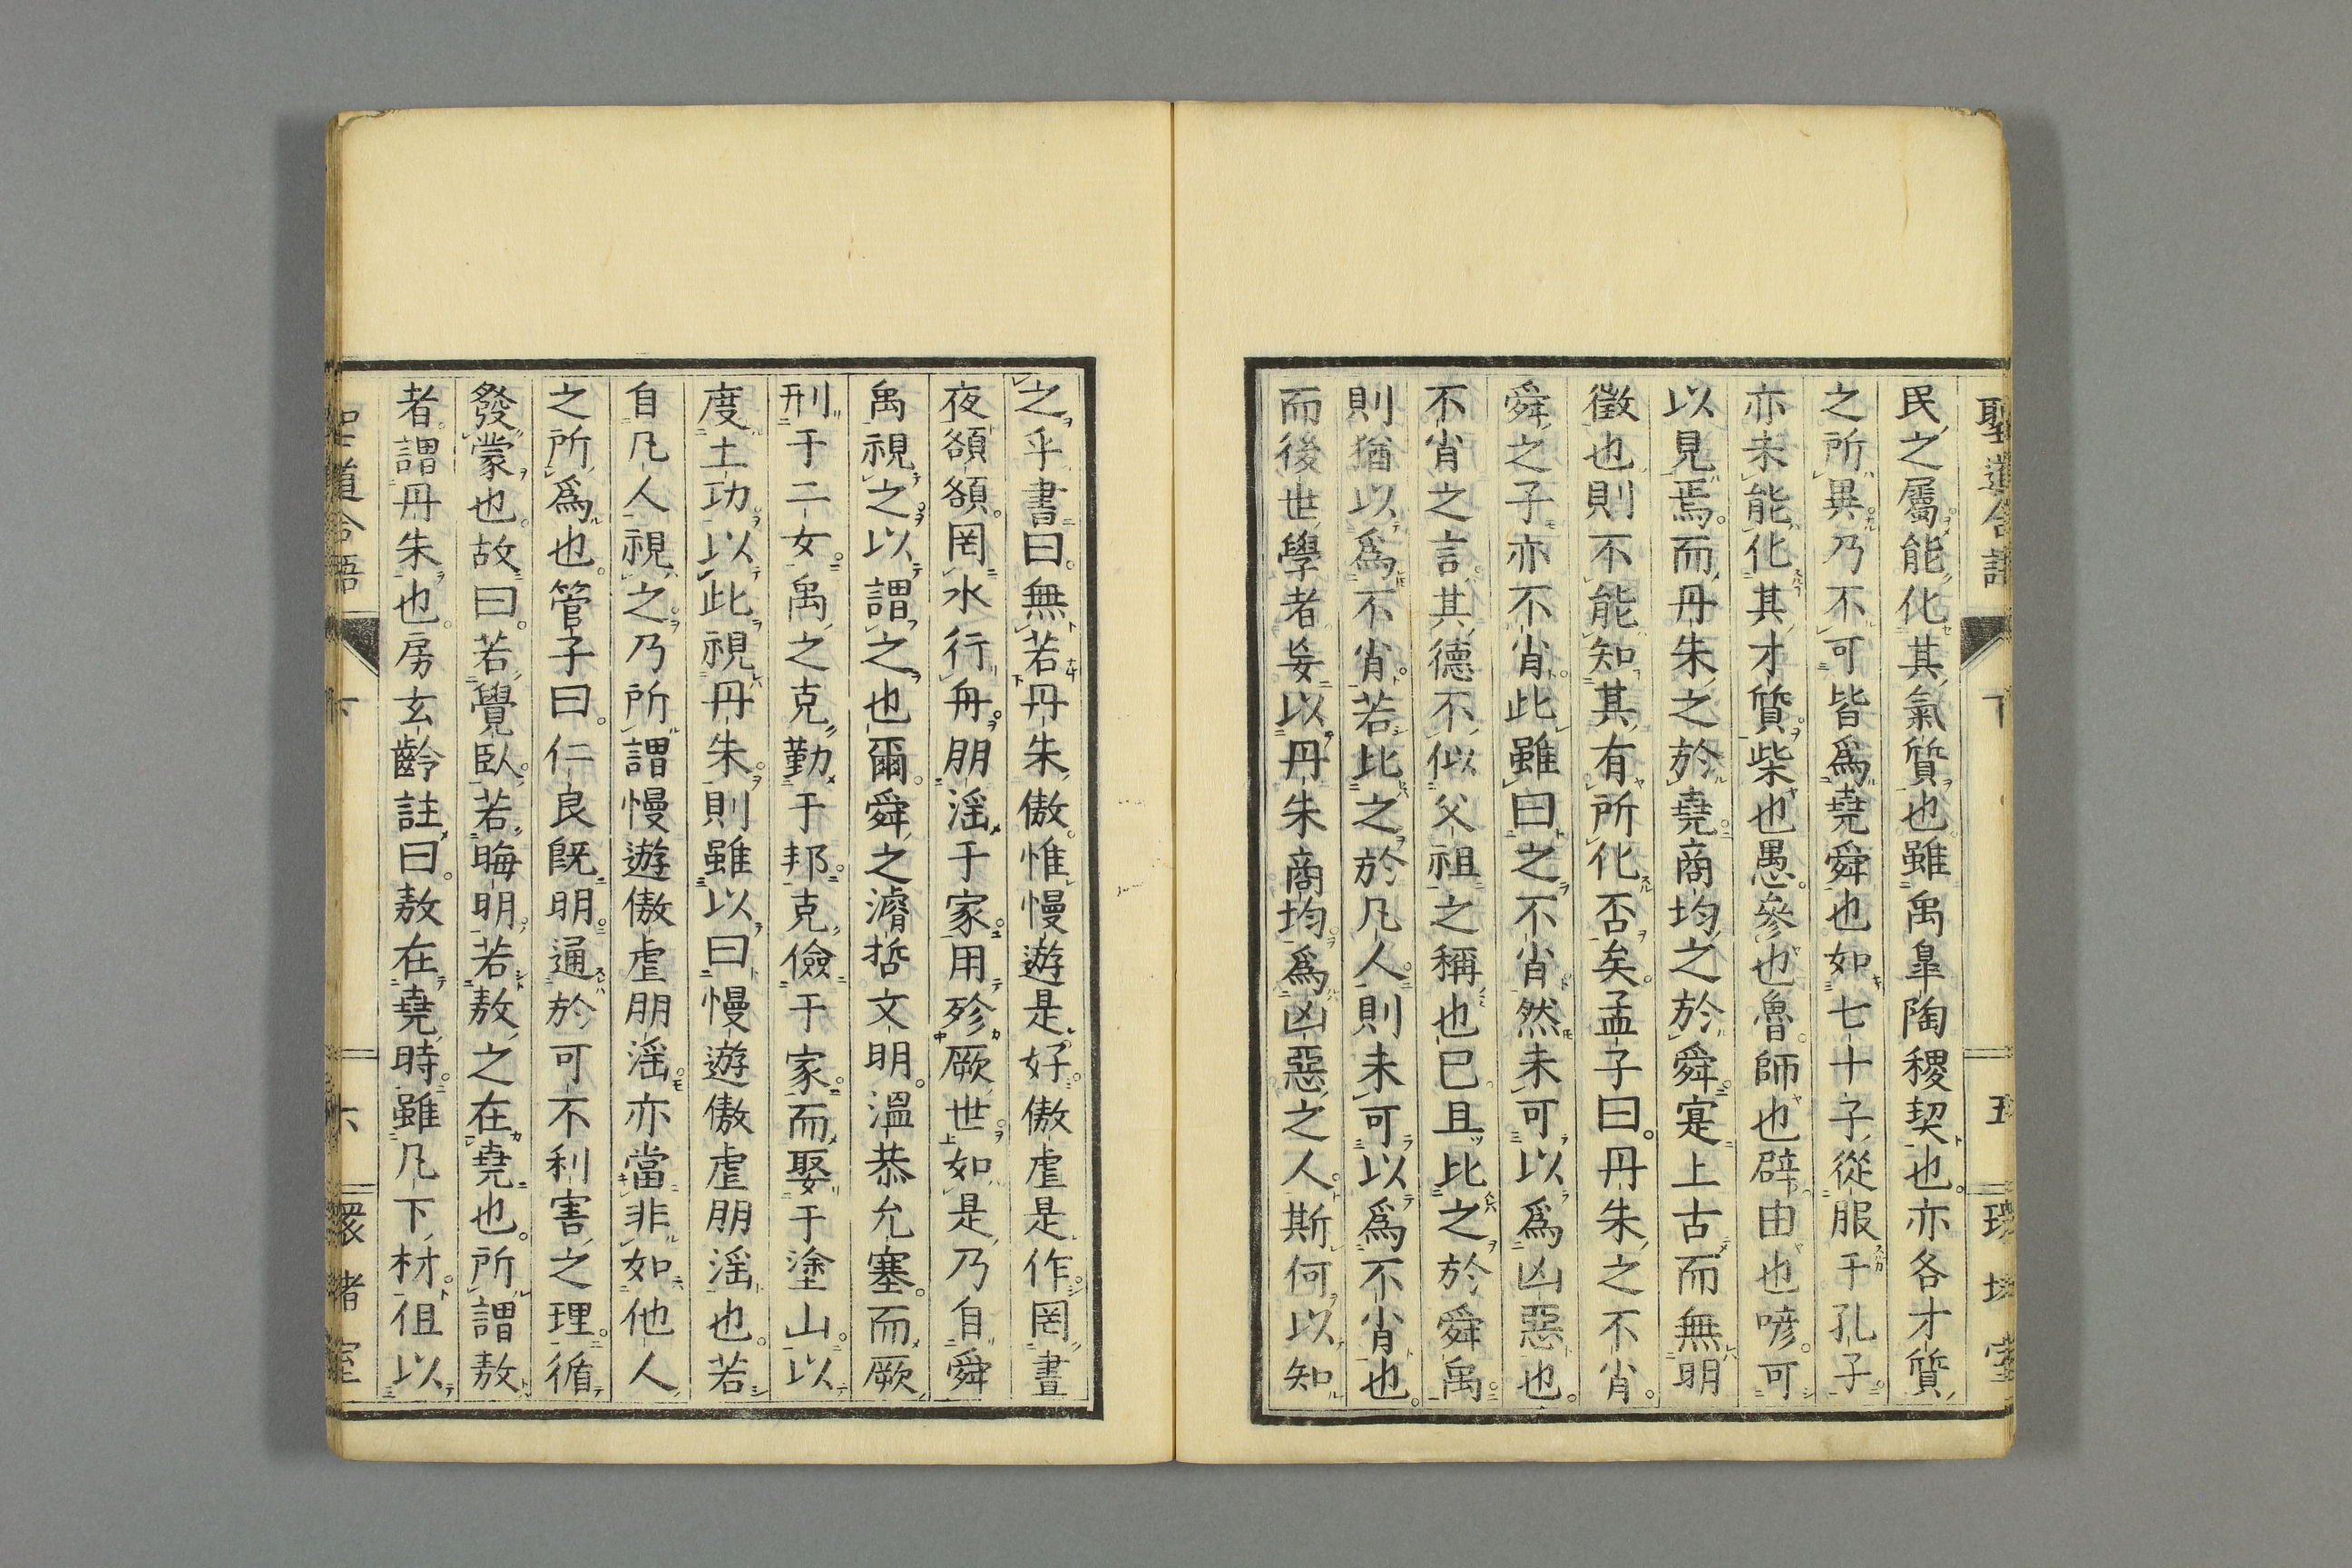 聖道合語 下 五 環堵室
民之屬能化其氣質也雖禹皐陶稷契也亦各才質
之所異乃不可皆爲堯舜也如七十子從服于孔子
亦未能化其才質柴也愚參也魯師也辟由也喭可
以見焉而丹朱之於堯商均之於舜寔上古而無明
徵也則不能知其有所化否矣孟子曰丹朱之不肖
舜之子亦不肖此雖曰之不肖然未可以爲凶惡也
不肖之言其德不似父祖之稱也已且比之於舜禹
則猶以爲不肖若比之於凡人則未可以爲不肖也
而後世學者妄以丹朱商均爲凶惡之人斯何以知
之乎書曰無若丹朱傲惟慢遊是好傲虐是作罔晝
夜頟頟罔水行舟朋淫于家用殄厥世如是乃自舜
禹視之以謂之也爾舜之濬哲文明溫恭允塞而厥
刑于二女禹之克勤于邦克儉于家而娶于塗山以
度土功以此視丹朱則雖以曰慢遊傲虐朋淫也若
自凡人視之乃所謂慢遊傲虐朋淫亦當非如他人
之所爲也管子曰仁良既明通於可不利害之理循
發蒙也故曰若覺臥若晦明若敖之在堯也所謂敖
者謂丹朱也房玄齡註曰敖在堯時雖凡下材但以
聖道合語 下 六 環堵室